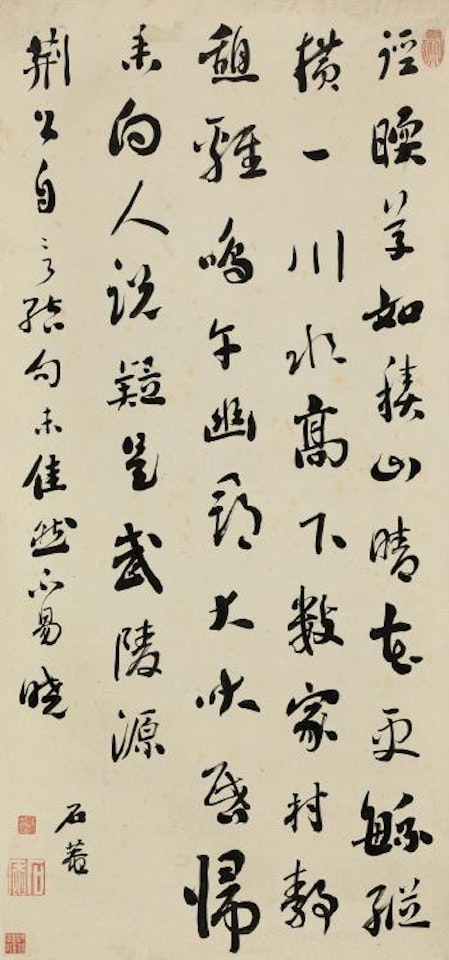 徑暖草如積山晴花更繁縱
橫一川水高下數家村靜
憩雞鳴午幽尋犬吠昏歸
來向人說疑是武陵源
荊公自言結句未佳然不易曉
石菴